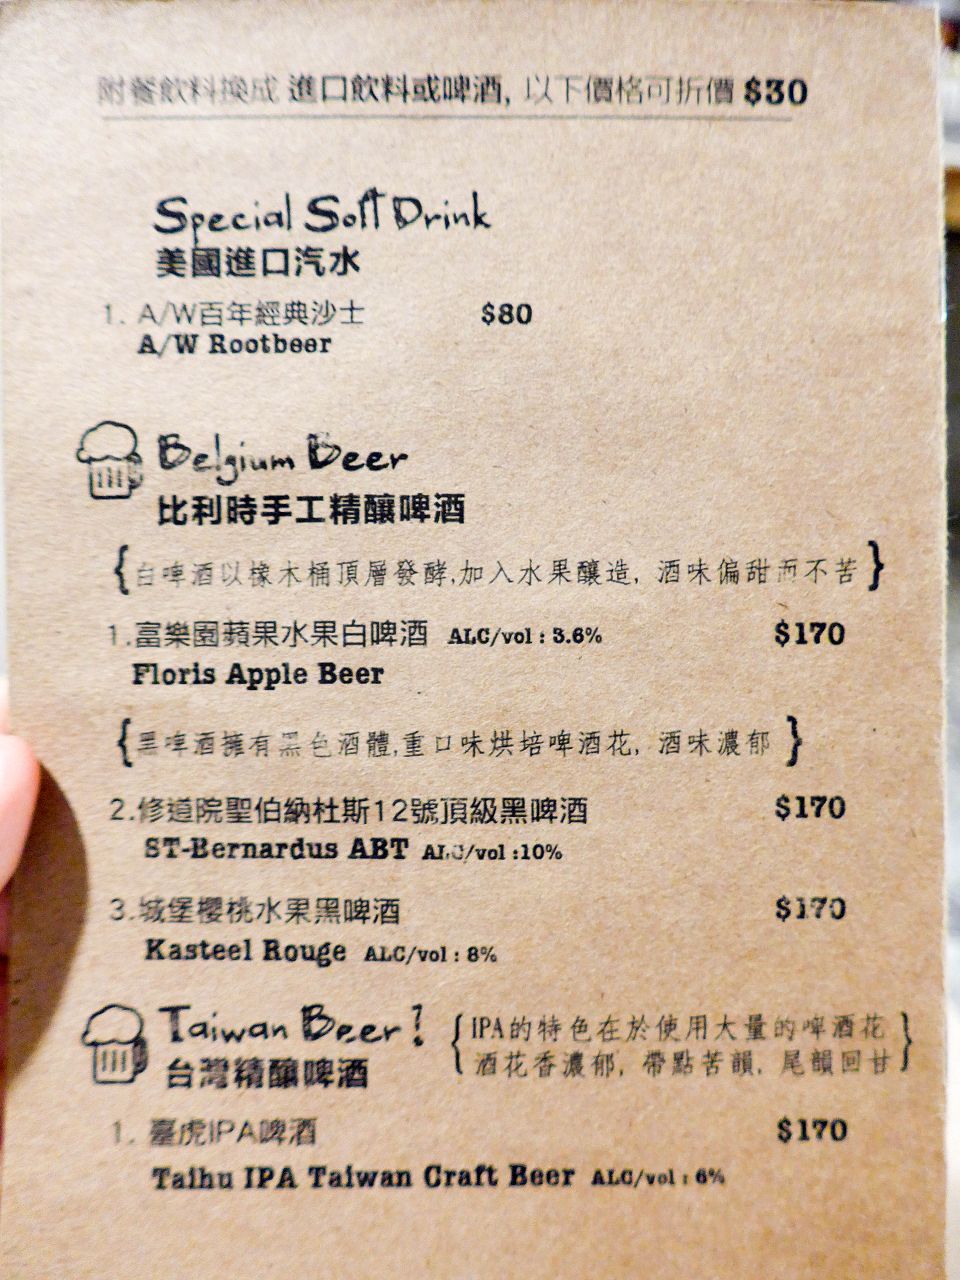 附餐飲料換成 進口飲料或啤酒, 以下價格可折價 $30
Special Soft Drink
美國進口汽水
1. A/W百年經典沙士 $80
A/W Rootbeer
Belgium Beer
比利時手工精釀啤酒
{白啤酒以橡木桶頂層發酵,加入水果釀造, 酒味偏甜而不苦}
1.富樂園蘋果水果白啤酒 ALC/vol : 3.6% $170
Floris Apple Beer
{黑啤酒擁有黑色酒體,重口味烘培啤酒花, 酒味濃郁}
2.修道院聖伯納杜斯12號頂級黑啤酒 $170
ST-Bernardus ABT ALC/vol :10%
3.城堡櫻桃水果黑啤酒 $170
Kasteel Rouge ALC/vol : 8%
Taiwan Beer!
台灣精釀啤酒
{IPA的特色在於使用大量的啤酒花
酒花香濃郁, 帶點苦韻, 尾韻回甘}
1. 臺虎IPA啤酒 $170
Taihu IPA Taiwan Craft Beer ALC/vol : 6%